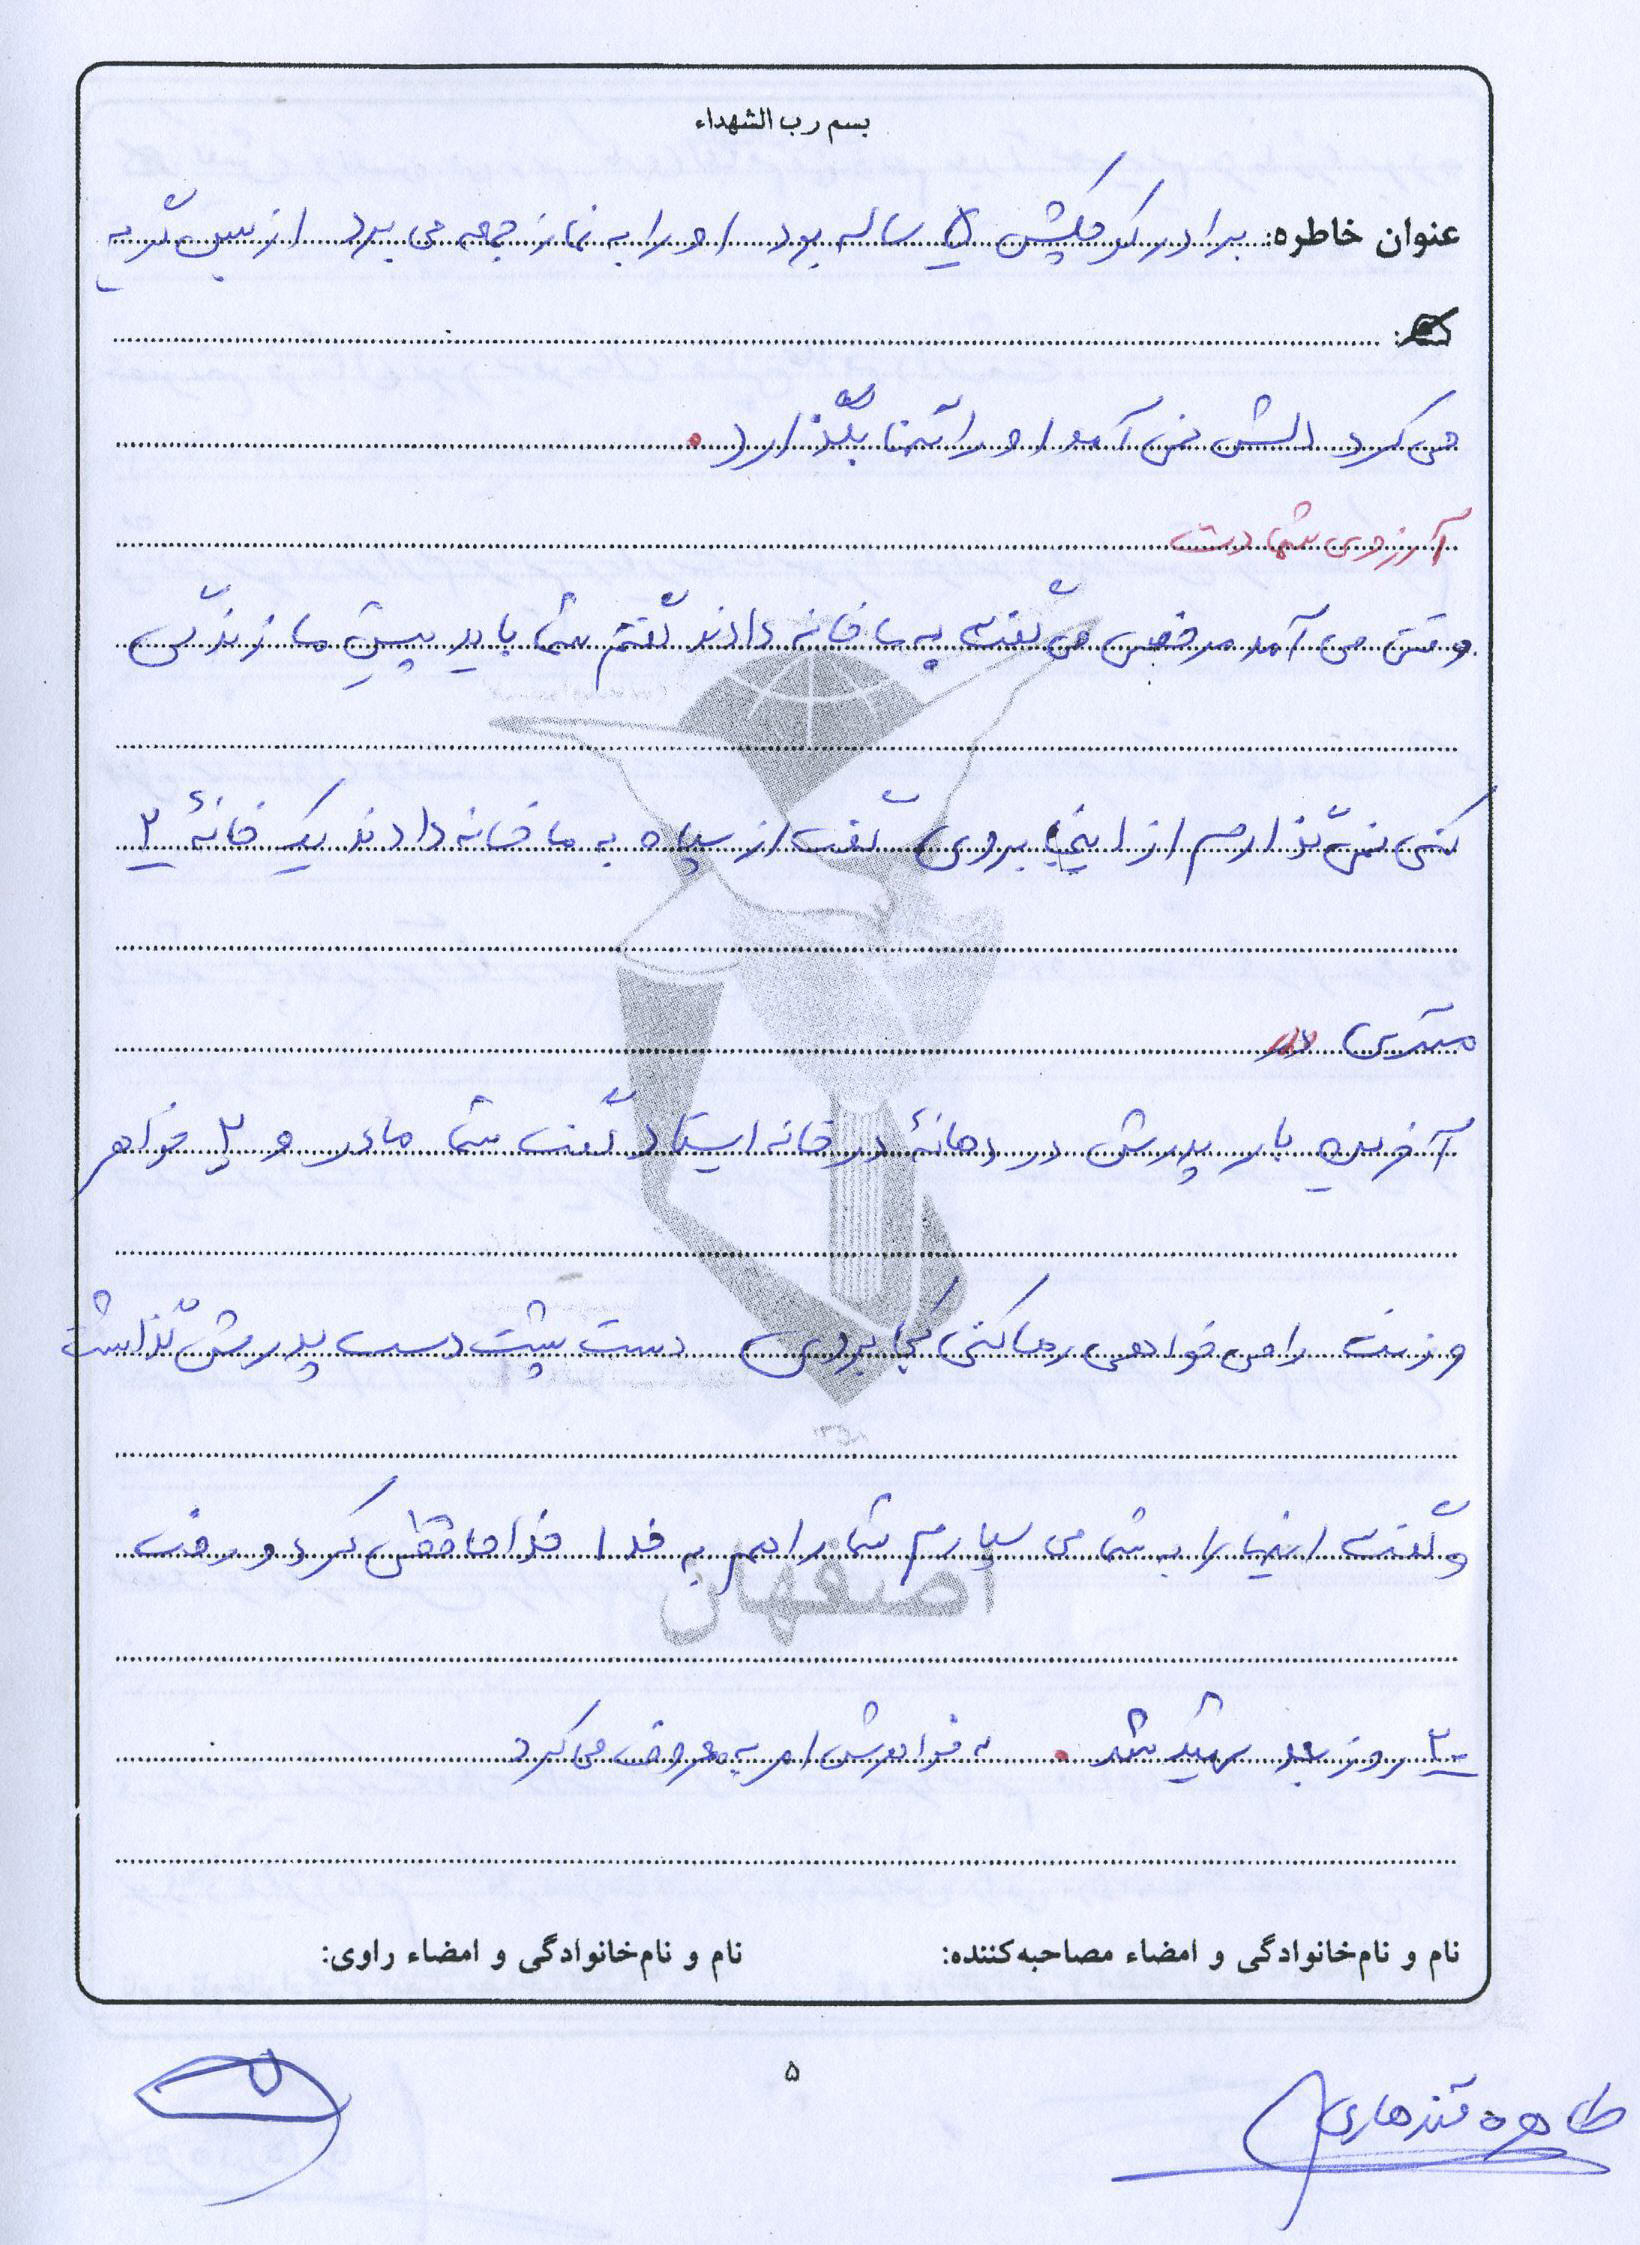 بسم رب الشهداء
عنوان خاطره: برادر کوچکش ۵ ساله بود او را به نماز جمعه می برد از بس گریه
می کرد دلش نمی آمد او را تنها بگذارد.
آرزوی شهادت
وقتی می آمد مرخصی می گفت به ما خانه دادند گفتم شما باید پیش ما زندگی
کنی نمی گذارم از اینجا بروی گفت از سپاه به ما خانه دادند یک خانهٔ ۲
متری
آخرین بار پدرش در دهانهٔ در خانه ایستاد گفت شما مادر و ۲ خواهر
و زنت را می خواهی رها کنی کجا بروی دست پشت دست پدرش گذاشت
و گفت اینها را به شما می سپارم شما را هم به خدا خداحافظی کرد و رفت
۲۰ روز بعد شهید شد. به خواهرش امر به معروف می کرد
نام و نام‌خانوادگی و امضاء مصاحبه‌کننده:
نام و نام‌خانوادگی و امضاء راوی:
اصفهان
۵
طاهره قندهاری